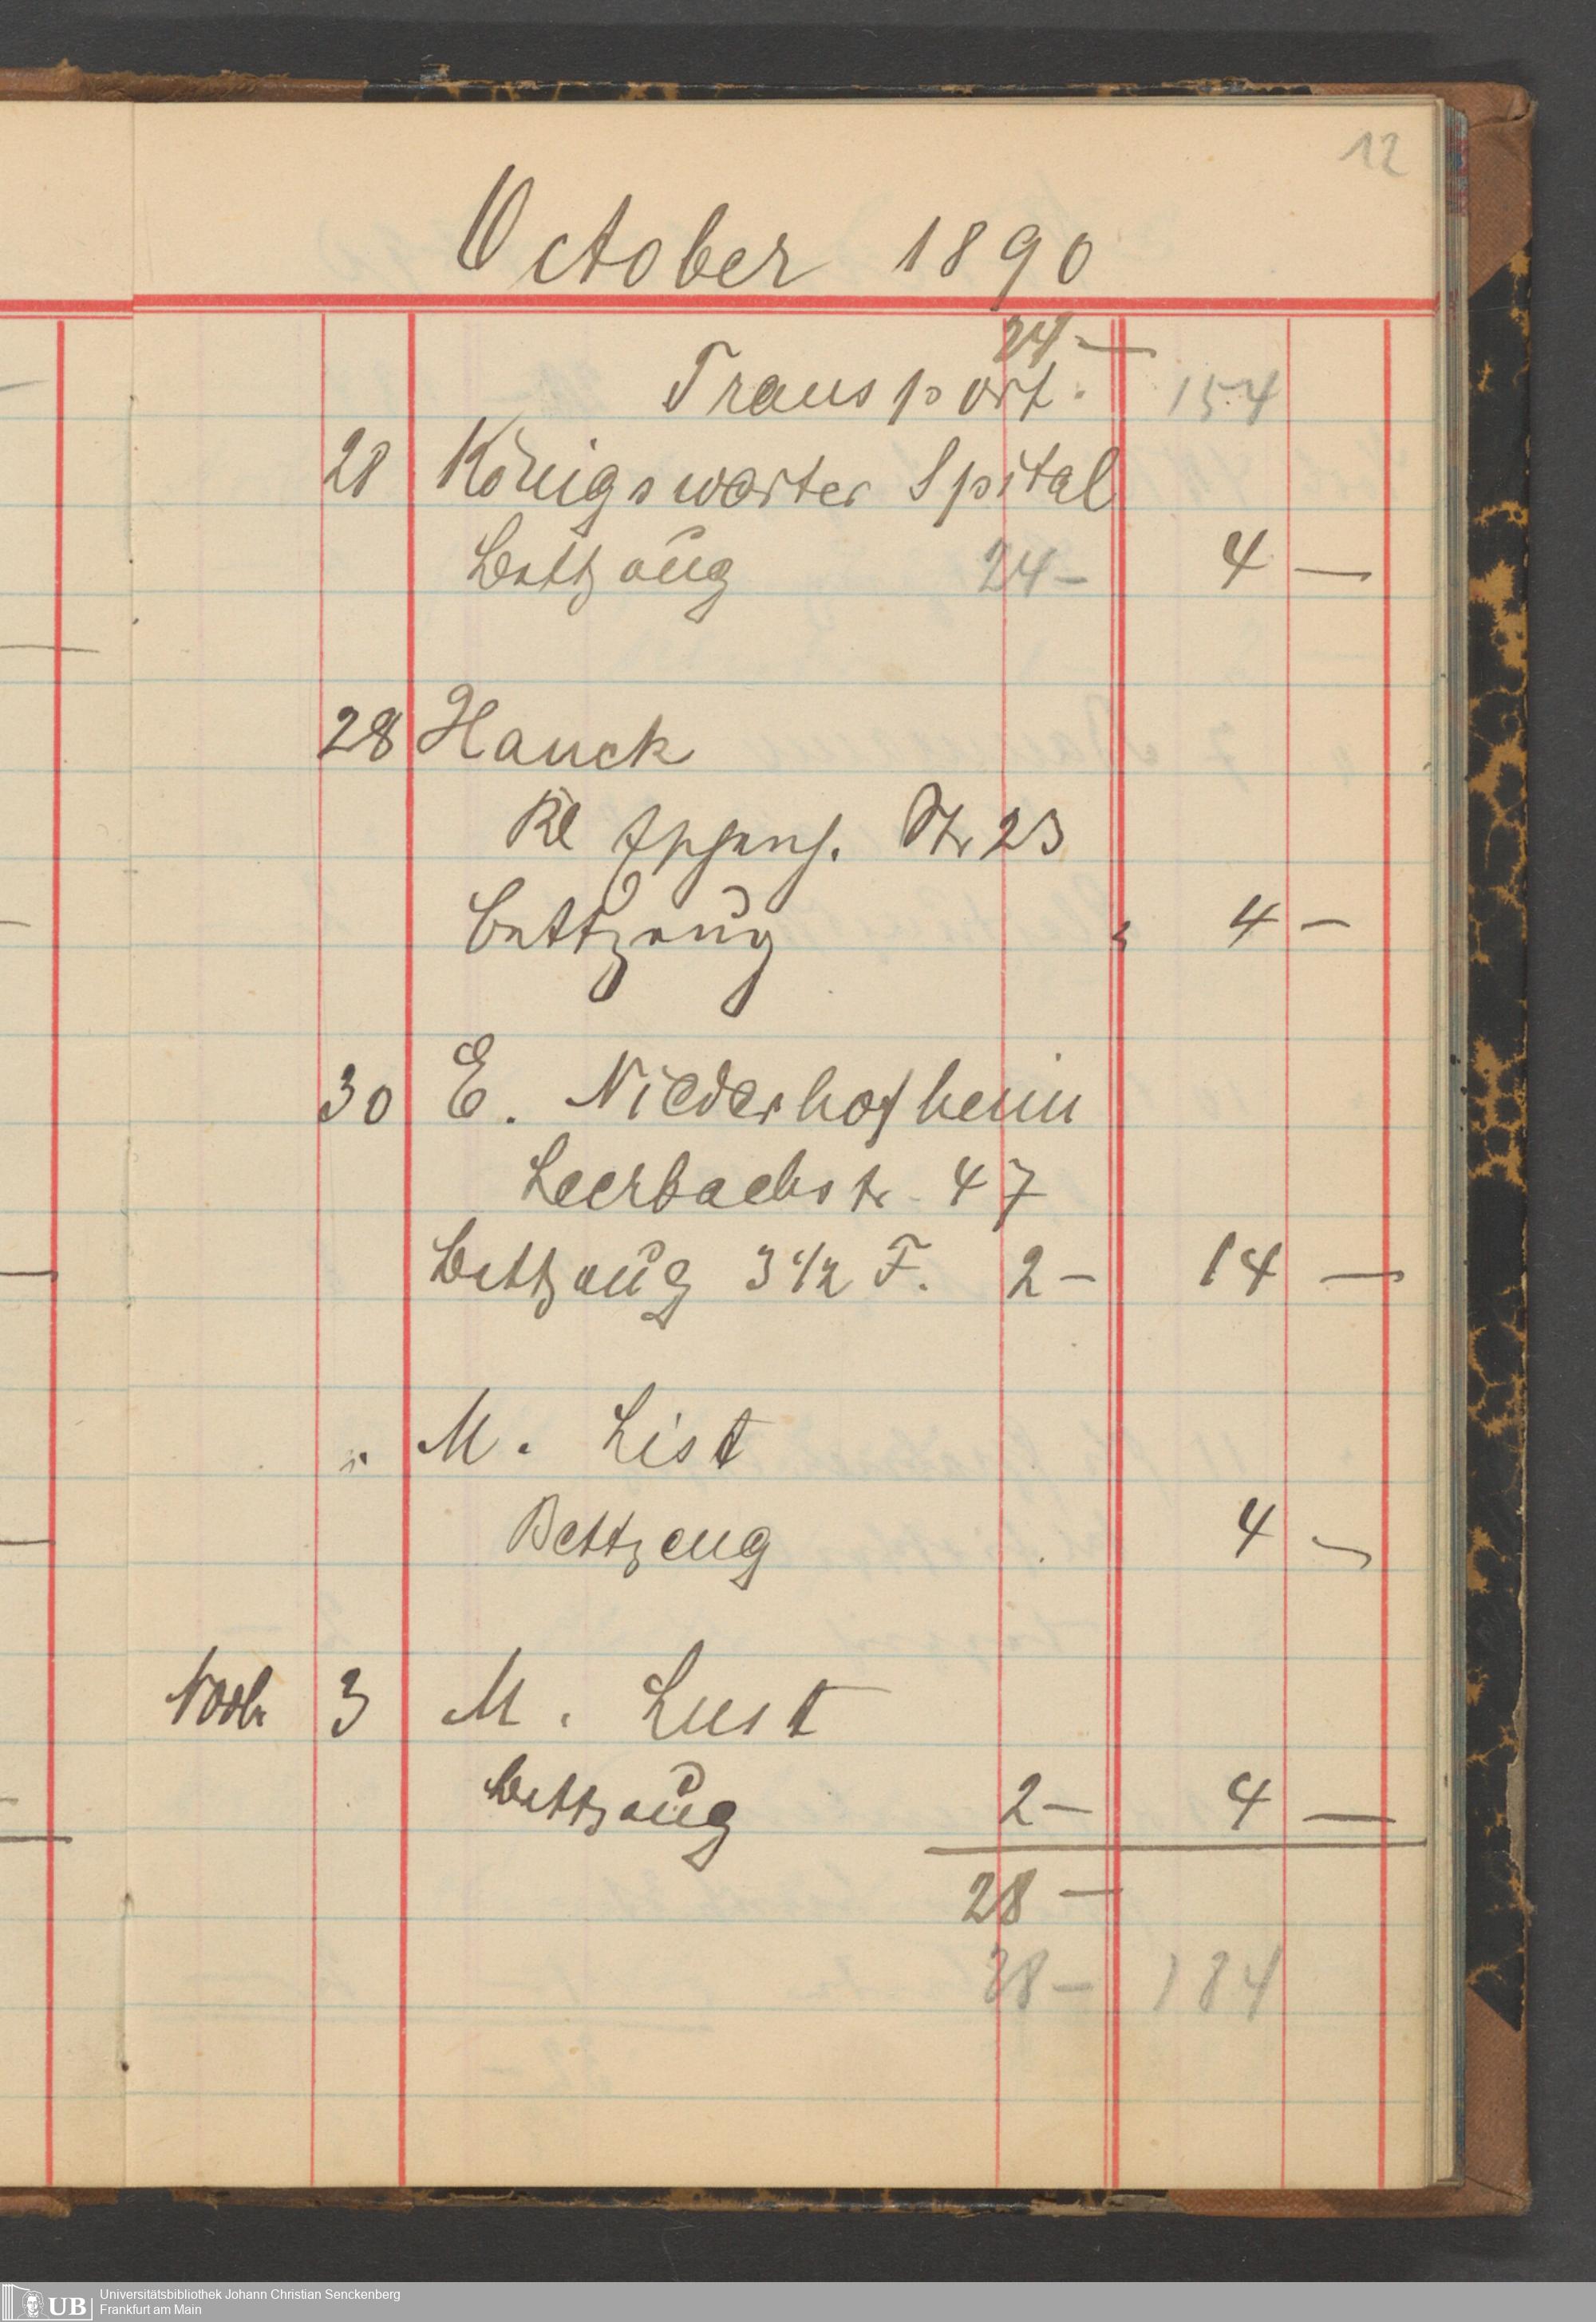 12
October 1890
24 —
Transport. 154
28 Königswarter Spital
Bettzeug 24 - 4 —
28 Hauck
Kl Str 23
Bettzeug 4 —
30 E. Niederhofheim
Leerbachstr. 47
Bettzeug 3 1/2 F. 2 — 14 —
" M. List
Bettzeug 4 —
Novbr 3 M. Lust
Bettzeug 2 — 4 —
28 —
28 — 184
UB Universitätsbibliothek Johann Christian Senckenberg
Frankfurt am Main